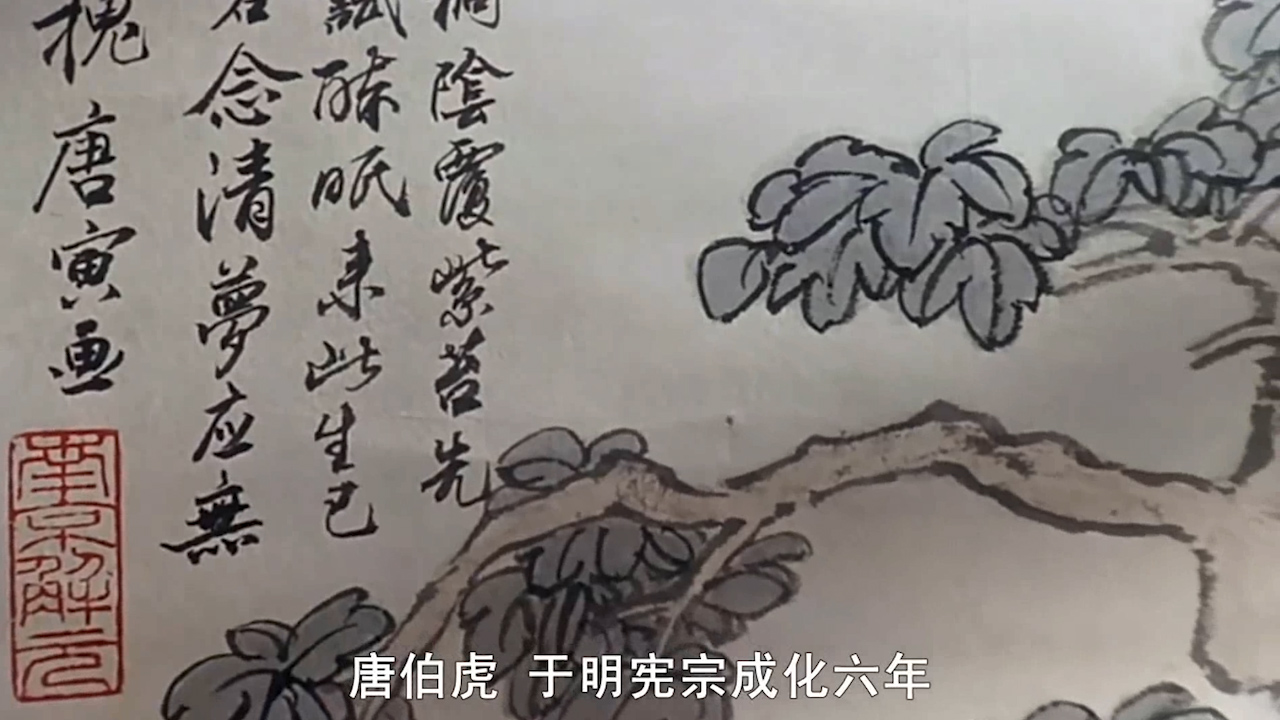 桐陰覆紫苔先
試酥眠来此生已
念清夢应無
槐唐寅画
南京解元
唐伯虎 于明宪宗成化六年